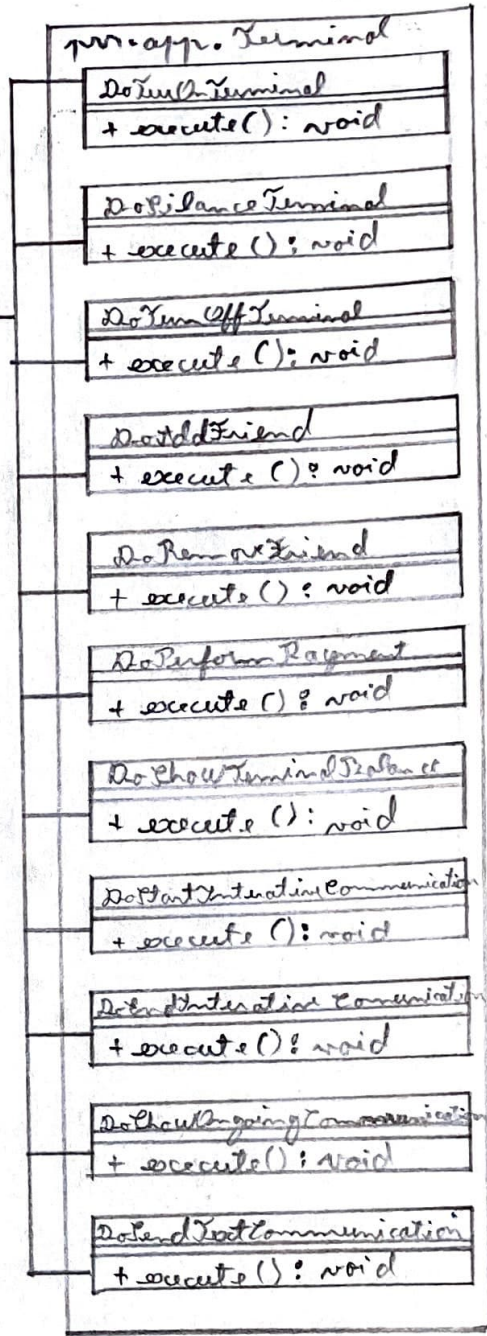 prr.app.Terminal
DoTurnOnTerminal
+ execute(): void
DoSilanceTerminal
+ execute(): void
DoTurnOffTerminal
+ execute(): void
DoAddFriend
+ execute(): void
DoRemoveFriend
+ execute(): void
DoPerformPayment
+ execute(): void
DoShowTerminalBalance
+ execute(): void
DoStartInterativeCommunication
+ execute(): void
DoEndInterativeComunication
+ execute(): void
DoShowOngoingCommunication
+ execute(): void
DoSendTextCommunication
+ execute(): void